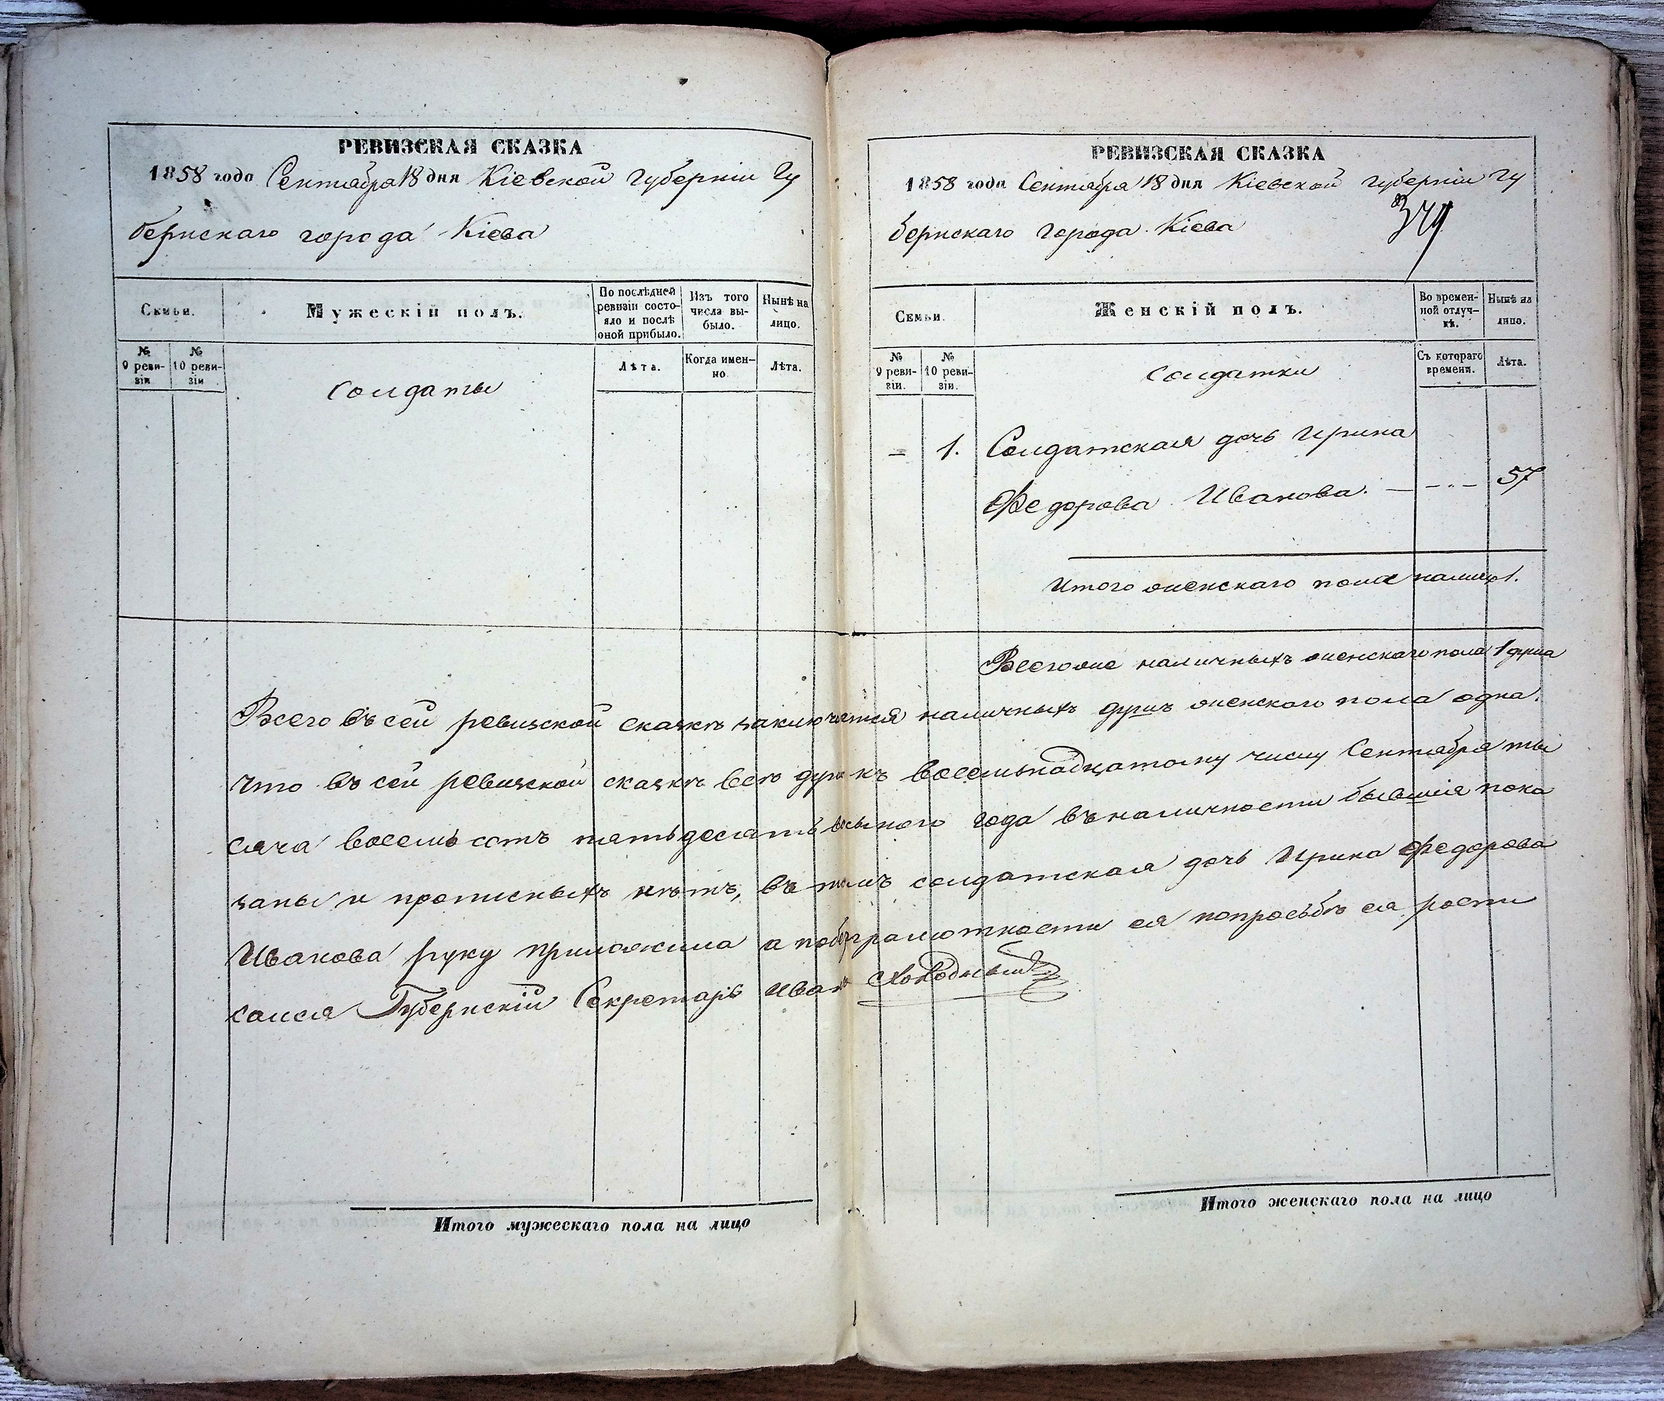 РЕВИЗСКАЯ СКАЗКА
1858 года Сентября 18 дня Кіевской губерніи Гу
бернскаго города Кіева
Семьи.
Мужескій полъ.
По послѣдней ревизіи состояло и послѣ оной прибыло.
Изъ того числа выбыло.
Нынѣ на лицо.
№ 9 ревизіи
№ 10 ревизіи
Лѣта.
Когда именно
Лѣта.
Солдаты
Итого мужескаго пола на лицо
РЕВИЗСКАЯ СКАЗКА
1858 года Сентября 18 дня Кіевской губерніи Гу
бернскаго города Кіева
379
Семьи.
Женскій полъ.
Во временной отлучкѣ.
Нынѣ на лицо.
№ 9 ревизіи.
№ 10 ревизіи.
Съ котораго времени.
Лѣта.
Солдатки
– 1. Солдатская дочь Ирина
Федорова Иванова. 57
Итого женскаго пола налицо 1.
Всего же наличныхъ женскаго пола 1 душа
Всего въ сей ревизской сказкѣ заключается наличныхъ душъ женскаго пола одна.
Что въ сей ревизской сказкѣ всѣ души къ восемьнадцатому числу Сентября ты
сяча восемь сотъ пятьдесятъ осьмого года въ наличности бывшія пока
заны и прописныхъ нѣтъ, въ томъ солдатская дочь Ирина Федорова
Иванова руку приложила а по безграмотности ея по просьбѣ ея роспи
сался Губернскій Секретарь Иванъ
Итого женскаго пола на лицо